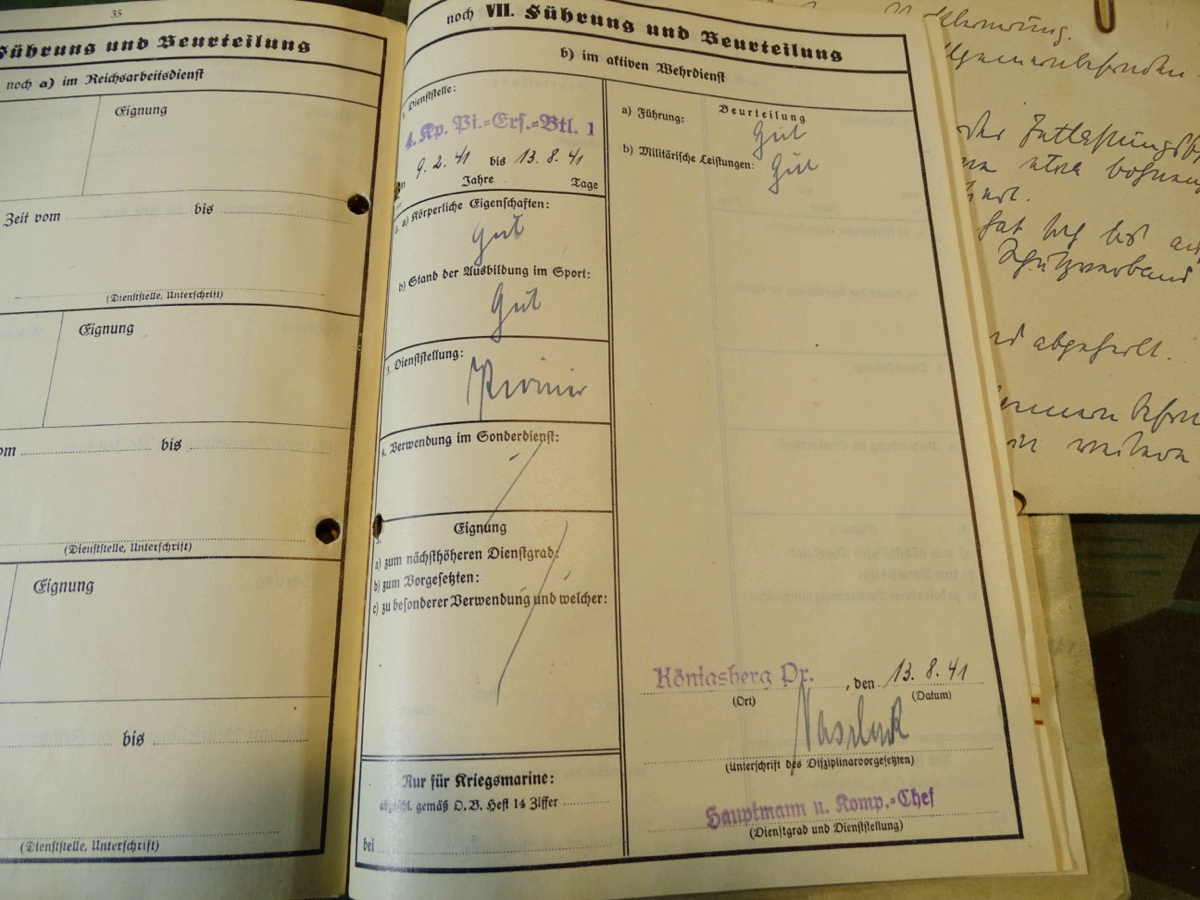 35
Führung und Beurteilung
noch a) im Reichsarbeitsdienst
Eignung
Zeit vom bis
(Dienststelle, Unterschrift)
Eignung
bis
(Dienststelle, Unterschrift)
Eignung
bis
(Dienststelle, Unterschrift)
noch VII. Führung und Beurteilung
b) im aktiven Wehrdienst
Dienststelle:
4. Kp. Pi.=Ers.=Btl. 1
9. 2. 41 bis 13. 8. 41
Jahre Tage
a) Körperliche Eigenschaften:
Gut
b) Stand der Ausbildung im Sport:
Gut
3. Dienststellung:
Pionier
4. Verwendung im Sonderdienst:
Eignung
a) zum nächsthöheren Dienstgrad:
b) zum Vorgesetzten:
c) zu besonderer Verwendung und welcher:
Nur für Kriegsmarine:
abgeschl. gemäß O.B. Heft 14 Ziffer
bei
Beurteilung
a) Führung:
Gut
b) Militärische Leistungen:
Gut
Königsberg Pr. , den 13. 8. 41
(Ort) (Datum)
(Unterschrift des Disziplinarvorgesetzten)
Hauptmann u. Komp.=Chef
(Dienstgrad und Dienststellung)
abgeheilt.